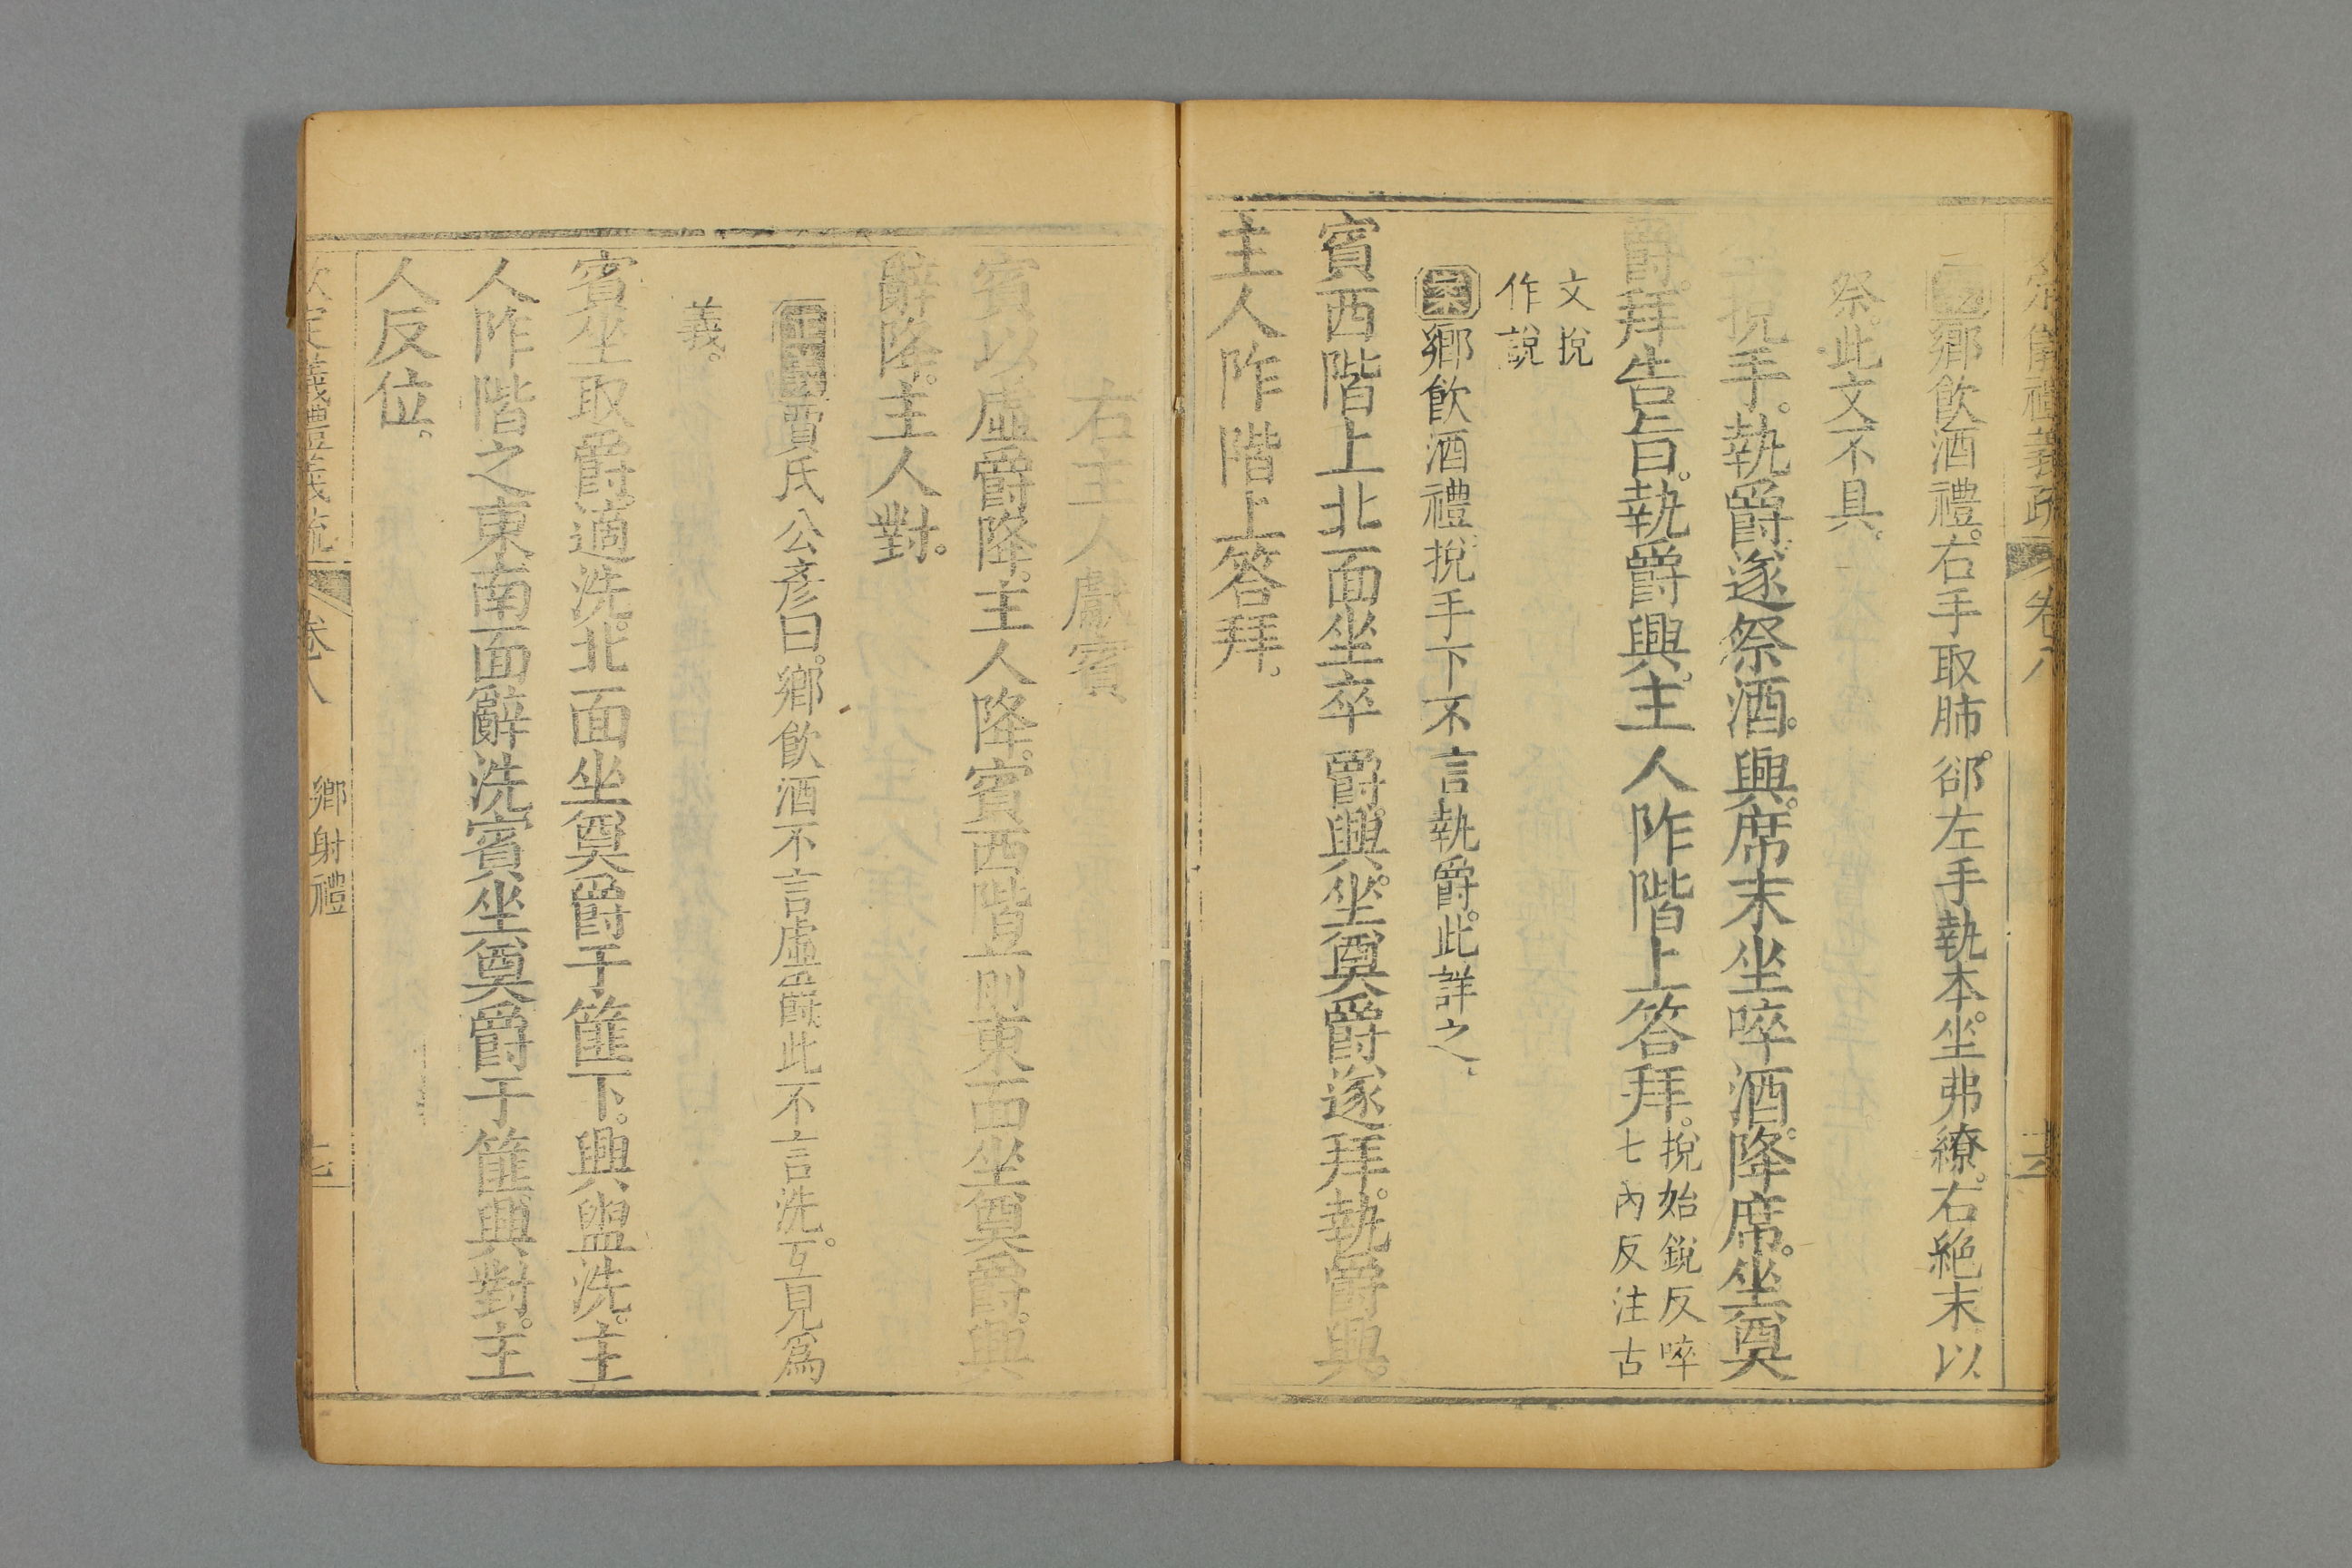 儀禮義疏 卷八
鄉飲酒禮。右手取肺。郤左手執本。坐弗繚。右絶末以
祭。此文不具。
挩手。執爵遂祭酒。興。席末坐啐酒。降席。坐奠
爵。拜告旨。執爵興。主人阼階上答拜。挩始銳反啐
七內反注古
文挩
作說
案鄉飲酒禮挩手下不言執爵。此詳之。
賓西階上北面坐卒爵。興。坐奠爵遂拜。執爵興。
主人阼階上答拜。
右主人獻賓
賓以虛爵降。主人降。賓西階前東面坐奠爵。興
辭降。主人對。
正義賈氏公彥曰。鄉飲酒不言虛爵此不言洗。互見爲
義。
賓坐取爵。適洗。北面坐奠爵于篚下。興盥洗。主
人阼階之東南面辭洗。賓坐奠爵于篚。興對。主
人反位。
欽定儀禮義疏 卷八 鄉射禮